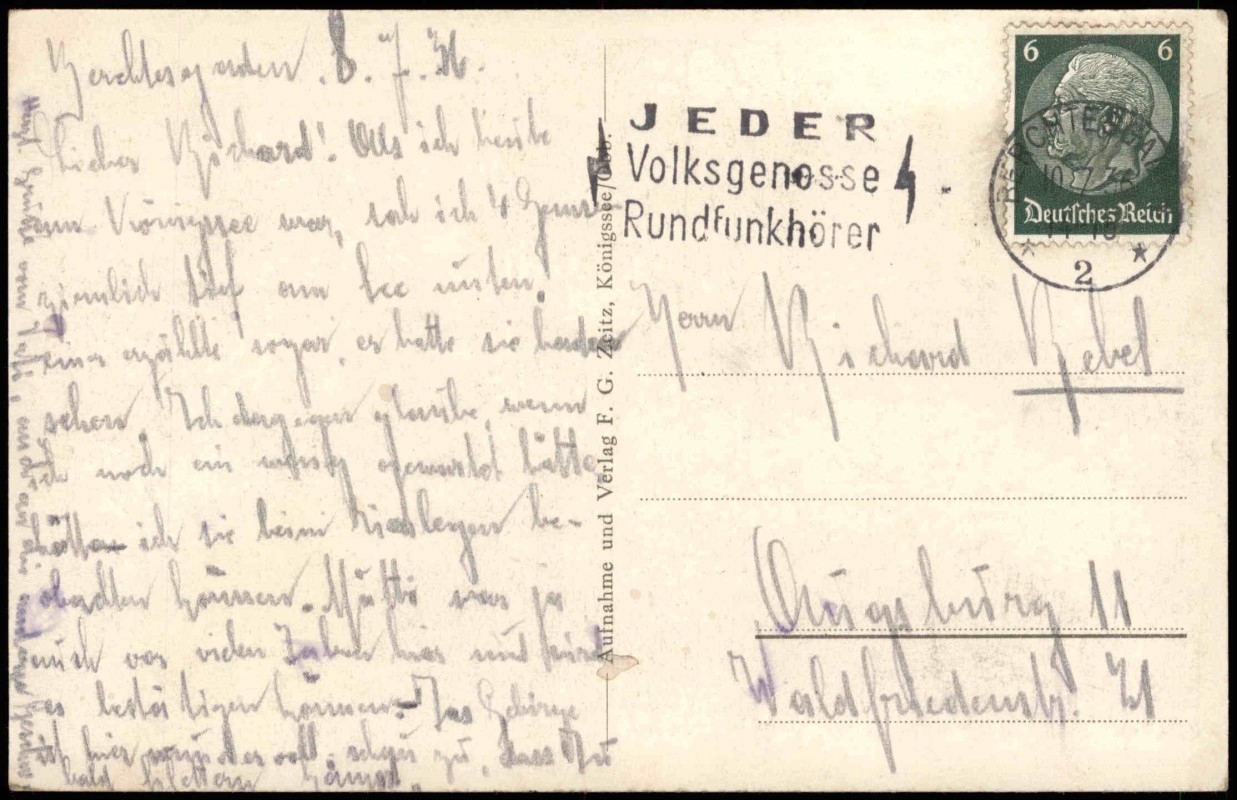 Berchtesgaden. 8. 7. 36.
Lieber Richard! Als ich heute
am Königssee war, sah ich 4 Gemsen
ziemlich tief am See unten.
einer erzählte sogar, er hatte sie baden
sehen. Ich dagegen glaube, wenn
ich noch ein wenig gewartet hätte,
hätte ich sie beim be-
obachten können. Mutti war ja
auch vor vielen Jahren hier und wird
es bestätigen können. - Das Gebirge
ist hier wundervoll. schau zu, dass Du
bald klettern kannst.
JEDER
Volksgenosse
Rundfunkhörer
6 6
Deutsches Reich
BERCHTESGADEN
10.7.36
2
Aufnahme und Verlag F. G. Zeitz, Königssee/Obb.
Herrn Richard Rebel
Augsburg 11
Waldfriedenstr. 21